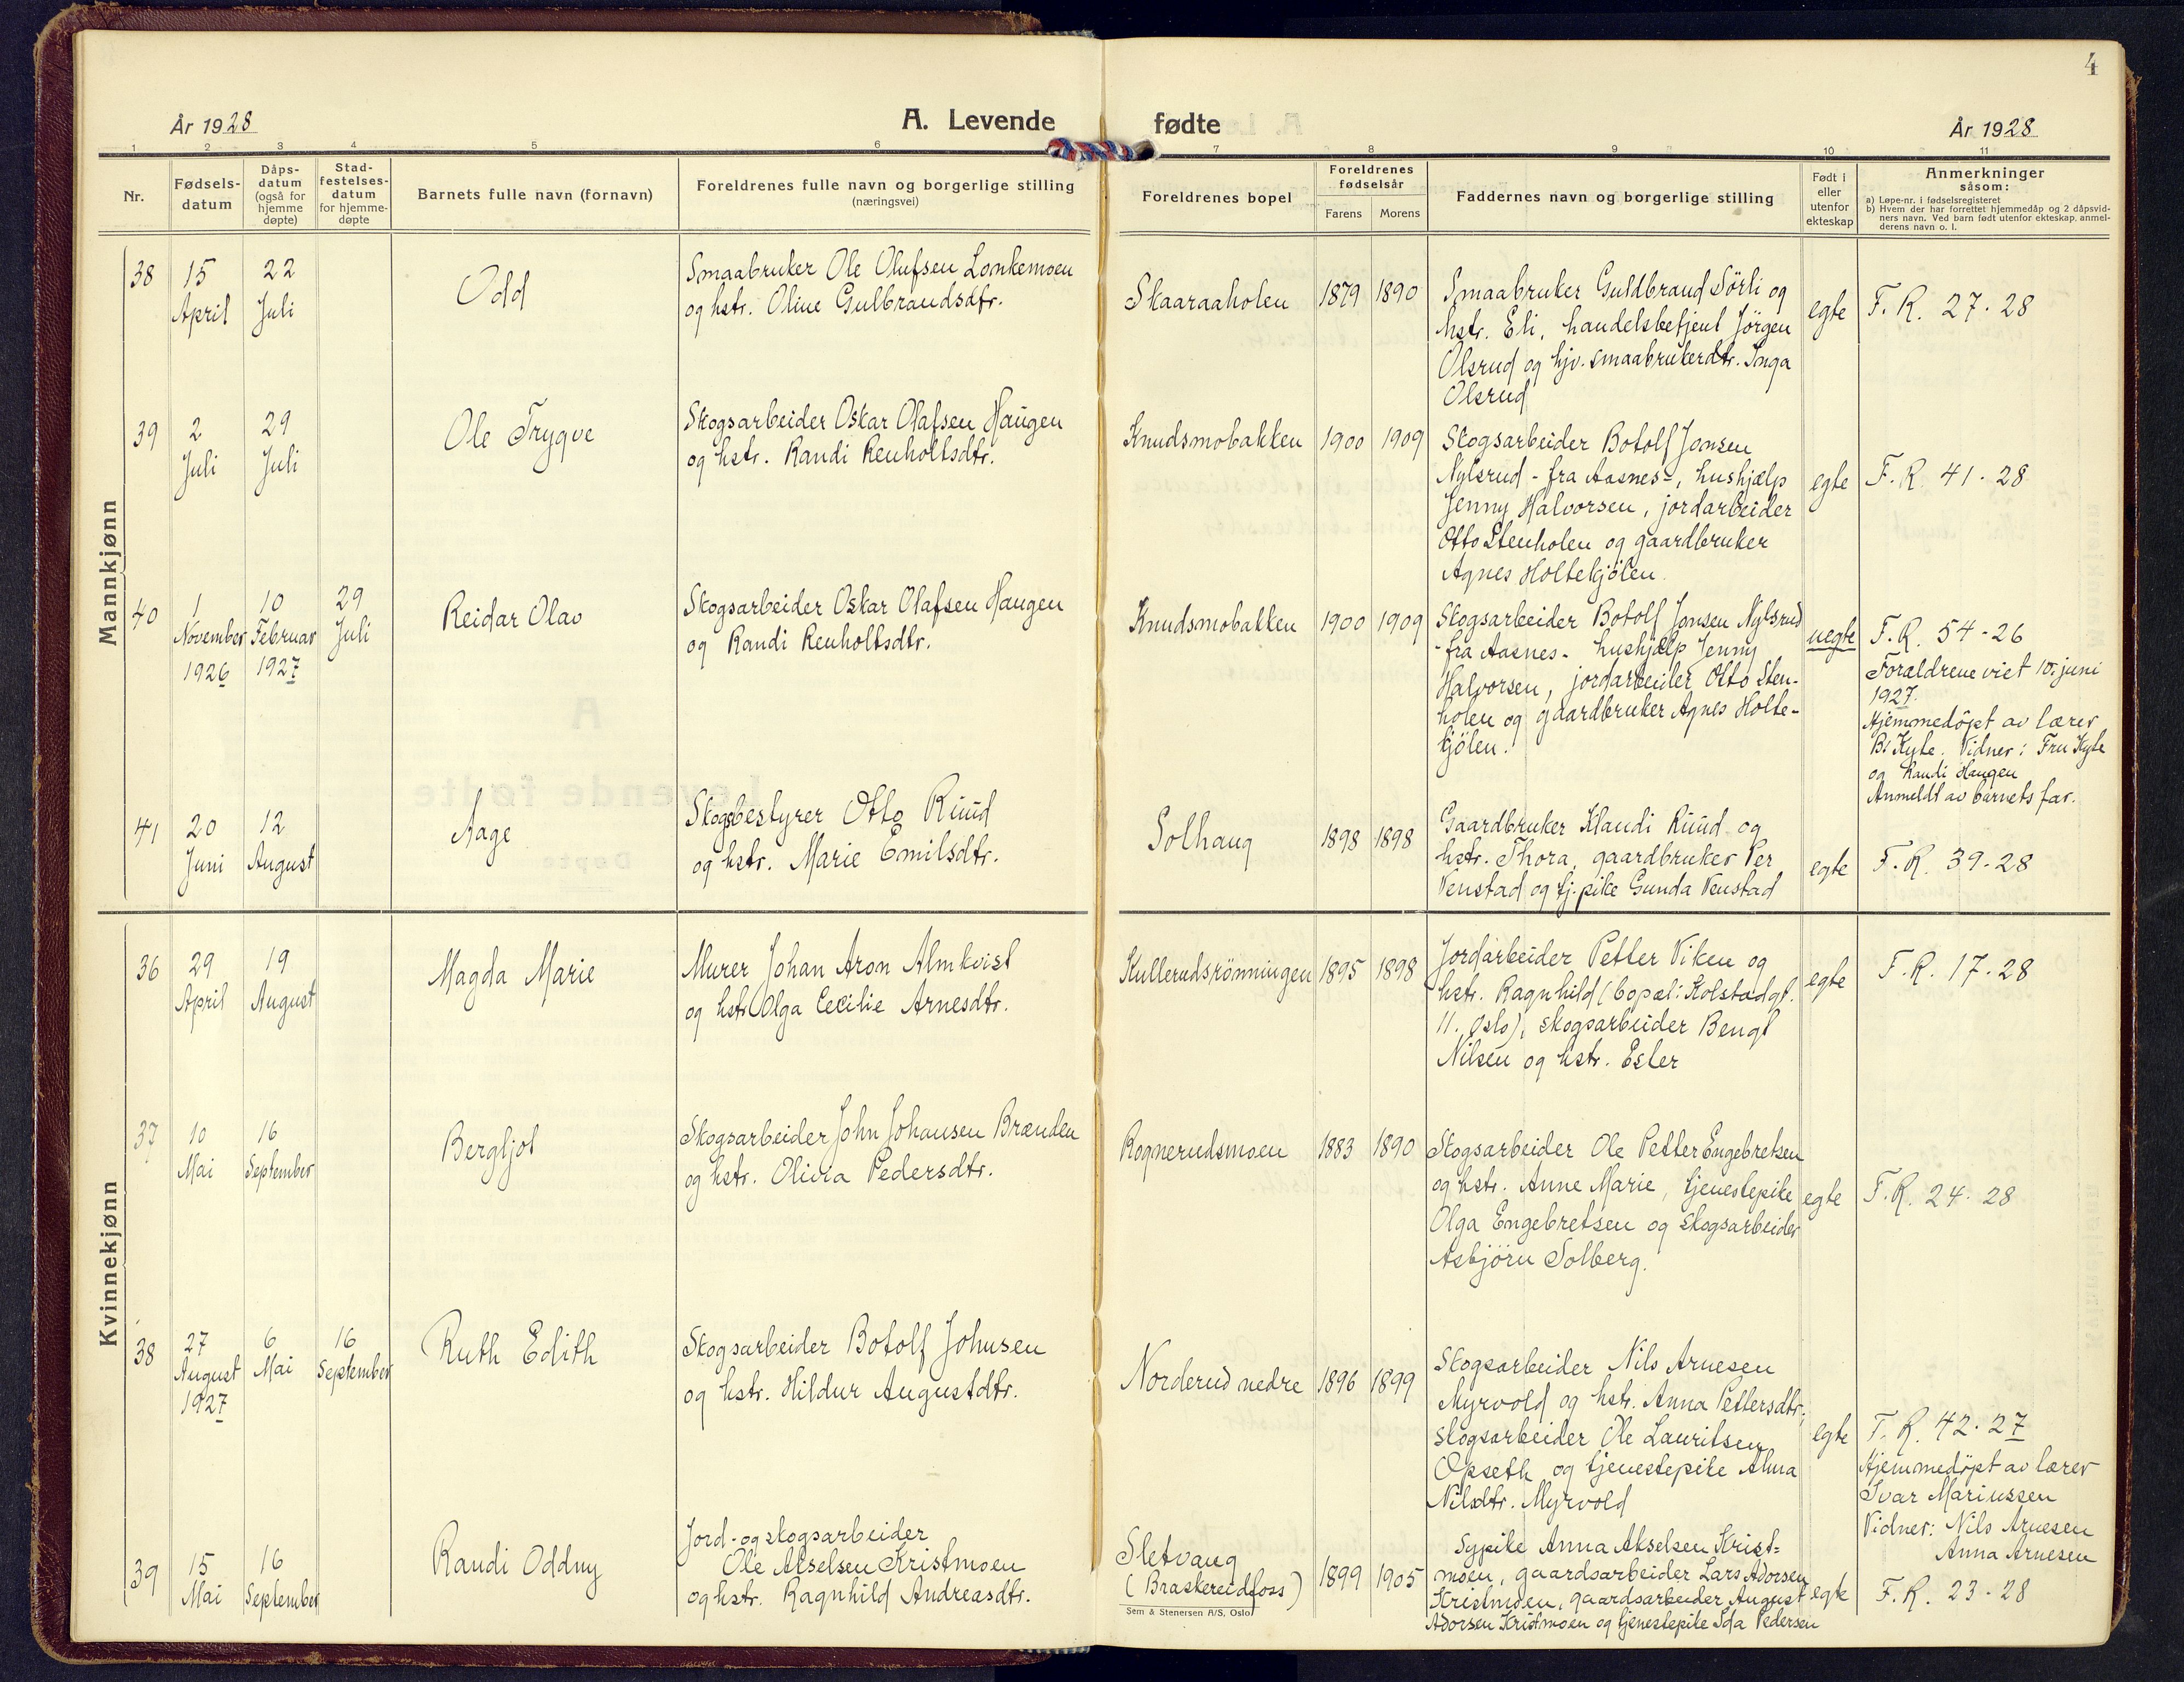 4
År 1928
A. Levende
fødte
År 1928
1 2 3 4 5 6 7 8 9 10 11
Nr.
Fødsels-
datum
Dåps-
datum
(også for
hjemme
døpte)
Stad-
festelses-
datum
for hjemme-
døpte
Barnets fulle navn (fornavn)
Foreldrenes fulle navn og borgerlige stilling
(næringsvei)
Foreldrenes bopel
Foreldrenes
fødselsår
Farens Morens
Faddernes navn og borgerlige stilling
Født i
eller
utenfor
ekteskap
Anmerkninger
såsom:
a) Løpe-nr. i fødselsregisteret
b) Hvem der har forrettet hjemmedåp og 2 dåpsvid-
ners navn. Ved barn født utenfor ekteskap, anmel-
derens navn o. l.
Mannkjønn
38
15
April
22
Juli
Odd
Smaabruker Ole Olufsen Lonkemoen
og hstr. Oline Gulbrandsdtr.
Skaaraaholen
1879 1890
Smaabruker Guldbrand Sörli og
hstr. Eli, handelsbetjent Jörgen
Olsrud og hjv. smaabrukerdtr. Inga
Olsrud
egte
F. R. 27-28
39
2
Juli
29
Juli
Ole Trygve
Skogsarbeider Oskar Olafsen Haugen
og hstr. Randi Renholtsdtr.
Knudsmobakken
1900 1909
Skogsarbeider Botolf Jonsen
Nylsrud - fra Aasnes -, hushjælp
Jenny Halvorsen, jordarbeider
Otto Stenholen og gaardbruker
Agnes Holtekjölen.
egte
F. R. 41-28
40
1
November
1926
10
Februar
1927
29
Juli
Reidar Olav
Skogsarbeider Oskar Olafsen Haugen
og Randi Renholtsdtr.
Knudsmobakken
1900 1909
Skogsarbeider Botolf Jonsen Nylsrud
- fra Aasnes - hushjælp Jenny
Halvorsen, jordarbeider Otto Sten-
holen og gaardbruker Agnes Holte-
kjölen.
uegte
F. R. 54-26
Forældrene viet 10. juni
1927.
Hjemmedöpt av lærer
B. Kyte. Vidner: Fru Kyte
og Randi Haugen
Anmeldt av barnets far.
41
20
Juni
12
August
Aage
Skogbestyrer Otto Ruud
og hstr. Marie Emilsdtr.
Solhaug
1898 1898
Gaardbruker Klaudi Ruud og
hstr. Thora, gaardbruker Per
Venstad og tj.pike Gunda Venstad
egte
F. R. 39-28
Kvinnekjønn
36
29
April
19
August
Magda Marie
Murer Johan Aron Almkvist
og hstr Olga Cecilie Arnesdtr.
Kullerudsrönningen
1895 1898
Jordarbeider Petter Viken og
hstr. Ragnhild (bopæl: Kolstadgt.
11. Oslo), skogsarbeider Bengt
Nilsen og hstr. Ester
egte
F. R. 17-28
37
10
Mai
16
September
Bergljot
Skogsarbeider John Johansen Brænden
og hstr. Olivia Pedersdtr.
Rognerudsmoen
1883 1890
Skogsarbeider Ole Petter Engebretsen
og hstr. Anne Marie, tjenestepike
Olga Engebretsen og skogsarbeider
Asbjörn Solberg.
egte
F. R. 24-28
38
27
August
1927
6
Mai
16
September
Ruth Edith
Skogsarbeider Botolf Johnsen
og hstr. Hildur Augustdtr.
Norderud nedre
1896 1899
Skogsarbeider Nils Arnesen
Myrvold og hstr. Anna Pettersdtr,
skogsarbeider Ole Lauritsen
Opseth og tjenestepike Alma
Nilsdtr. Myrvold
egte
F. R. 42-27
Hjemmedöpt av lærer
Ivar Mariussen
Vidner: Nils Arnesen
Anna Arnesen
39
15
Mai
16
September
Randi Oddny
Jord- og skogsarbeider
Ole Akselsen Kristmoen
og hstr. Ragnhild Andreasdtr.
Sletvang
(Braskereidfoss)
1899 1905
Sypike Anna Akselsen Krist-
moen, gaardsarbeider Lars Adorsen
Kristmoen, gaardsarbeider August
Adorsen Kristmoen og tjenestepike Ida Pedersen
egte
F. R. 23-28
Sem & Stenersen A/S, Oslo